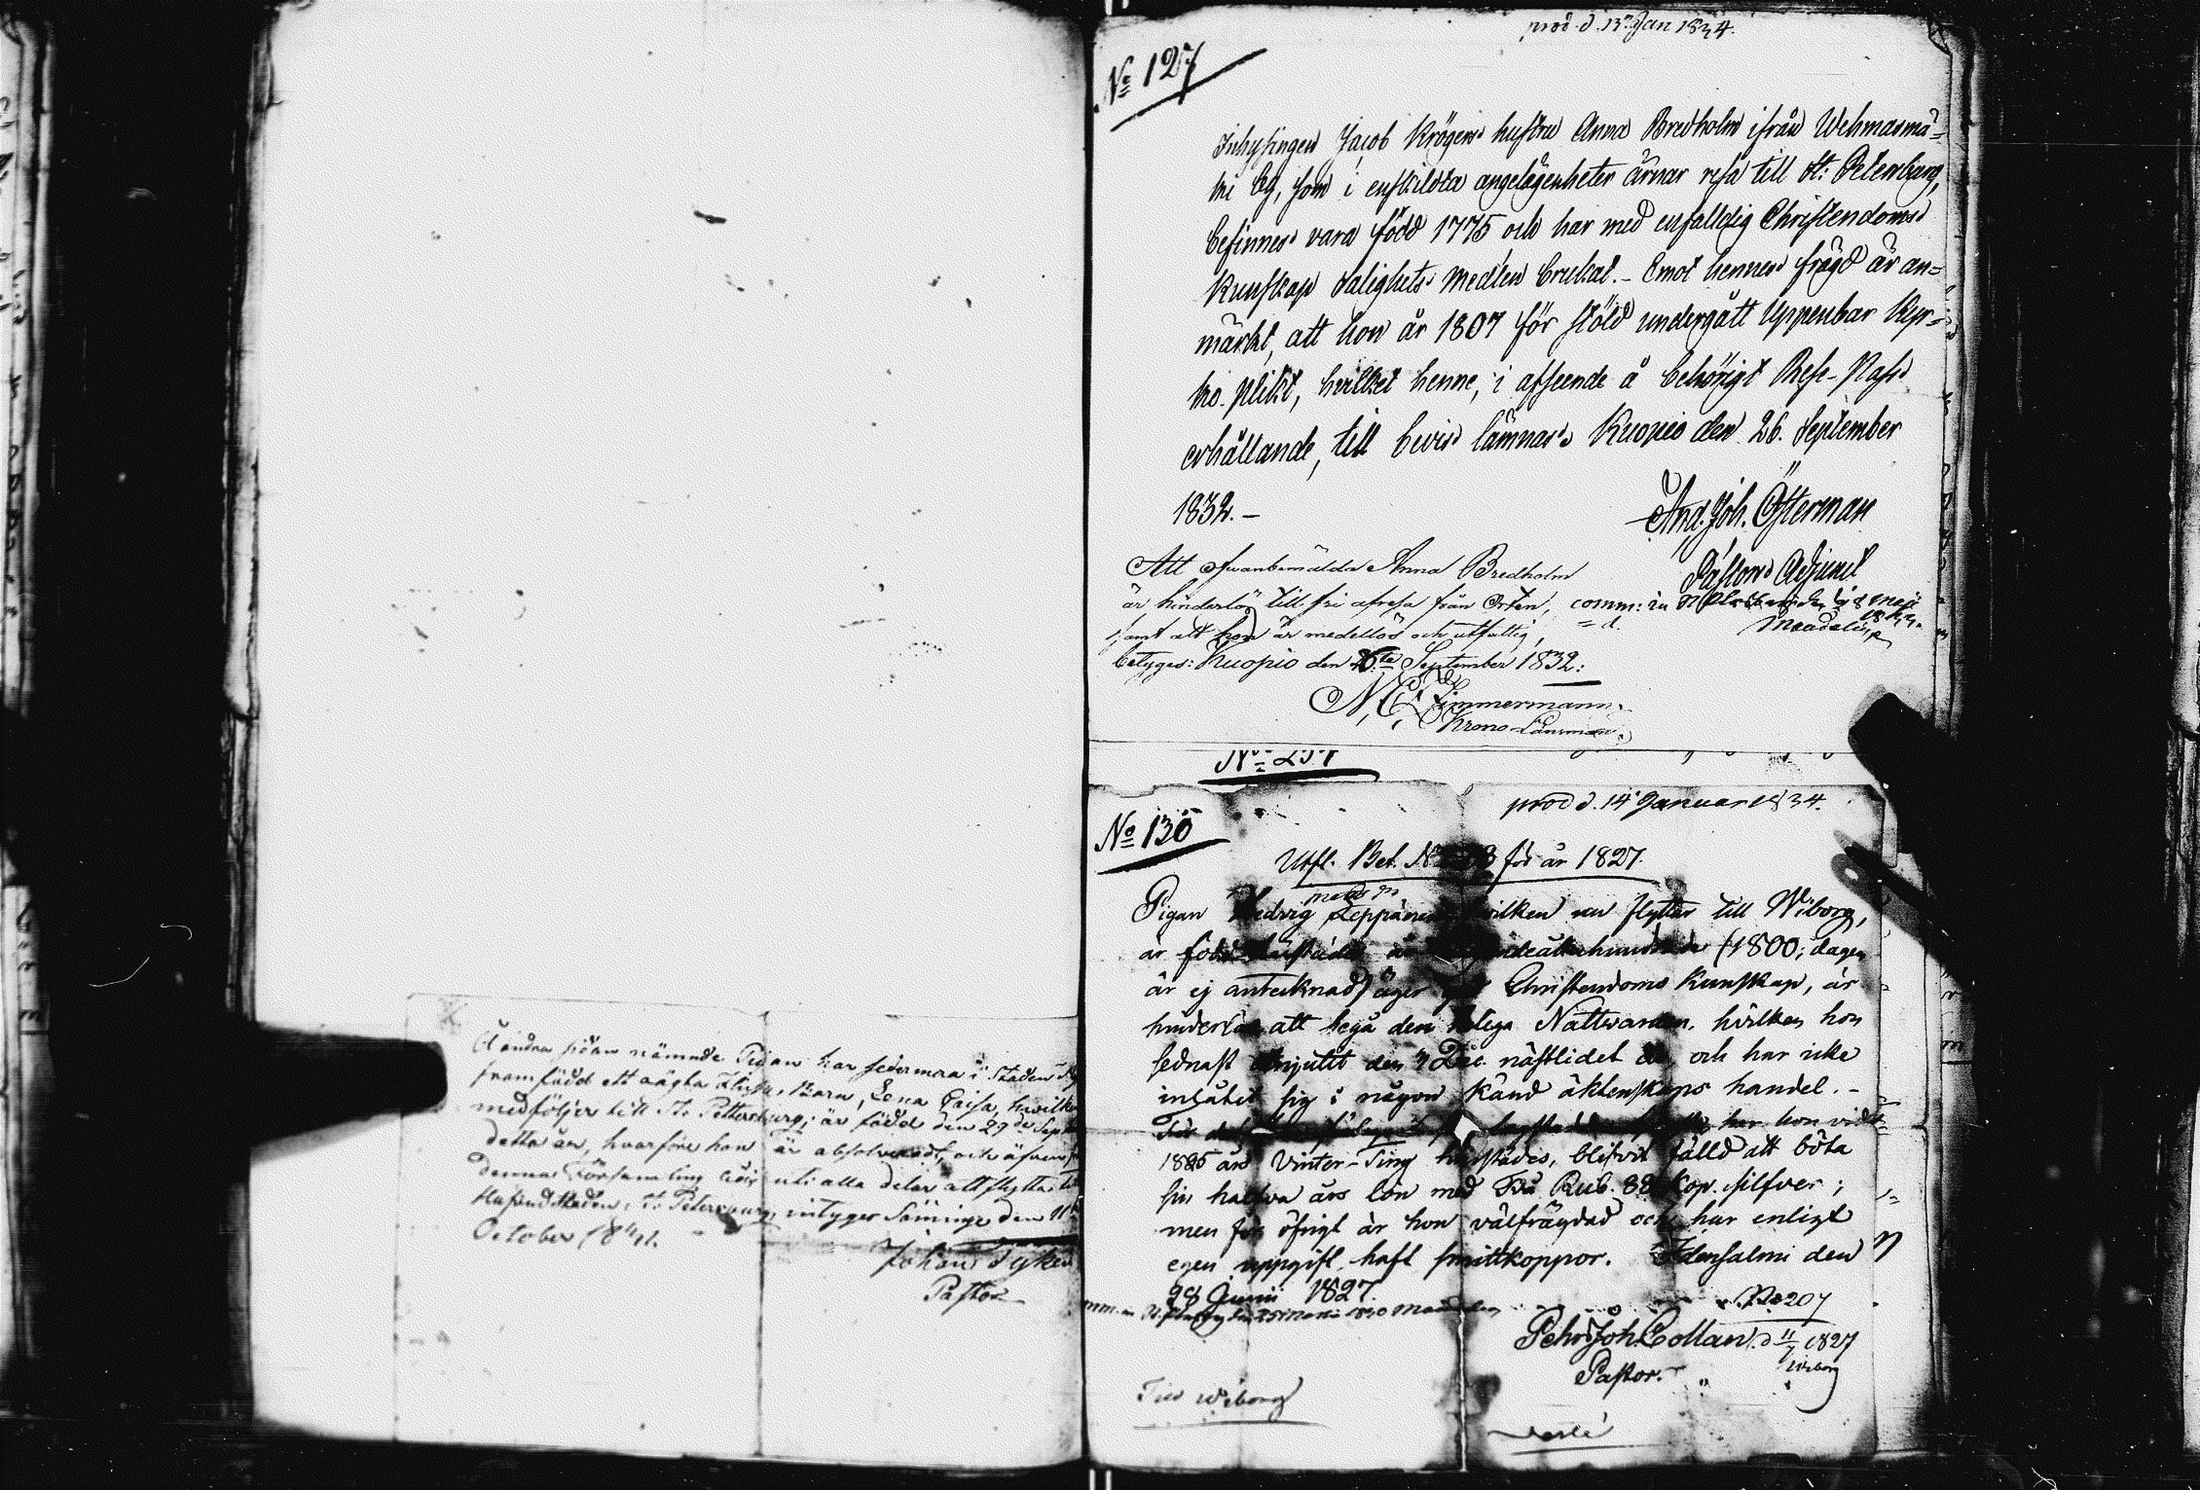 Å andra sidan nämnde Pigan har sedermera i Staden
framfödt ett oägta Flicko Barn, Lena Caisa, hwilken
medföljer till St. Petersburg; är född den 29de Sept
detta år, hvarföre hon är absolverad, och äfven
denna Församling uti alla delar att flytta till
Hufvudstaden St. Petersburg, intygar Säminge den 11
October 18
Johan
Pastor
prod. d. 13 Jan 1834.
No 127
Inhysingen Jacob Krögers hustru Anna Bredholm ifrån Wehmasmä=
ki by, som i enskildta angelägenheter ärnar resa till St: Petersburg,
befinnes vara född 1775 och har med enfalldig Christendoms
Kunskap Salighets medlen brukat. – Emot hennes frägd är an=
märkt, att hon år 1807 för stöld undergått Uppenbar Kyr=
ko-plikt, hvilket henne, i afseende å behörigt Rese-Pass
erhållande, till bevis lämnas. Kuopio den 26. September
1832. –
And. Joh. Österman
Pastors Adjunct
Att Ofvanbemälda Anna Bredholm
är hinderlös till fri afresa från Orten,
samt att hon är medellös och utfattig,
betygas: Kuopio den September 1832:
N. E. Zimmermann.
Krono Länsman.
comm: in
No 130
prod d. 14 Januar 1834.
Utfl. Bet. No för år 1827.
Pigan Hedvig Leppänen hvilken nu flyttar till Wiborg,
är född härstädes år (1800; dagen
är ej antecknad) äger Christendoms Kunskap, är
hinderlös att begå den heliga Nattvarden, hvilken hon
sednast åtnjutit den 7 Dec. nästlidet år och har icke
inlåtit sig i någon känd äktenskaps handel. –
har hon vidk
1825 års Vinter-Ting härstädes, blifvit fälld att böta
sin halfva års lön med Två Rub. 88 Kop. silfver;
men för öfrigt är hon välfrägdad och har enligt
egen uppgift, haft smittkoppor. Idensalmi den
28 Junii 1827.
No 207
Pehr Joh. Collan. d 11/7 1827
Pastor. Wiborg
Till Wiborg